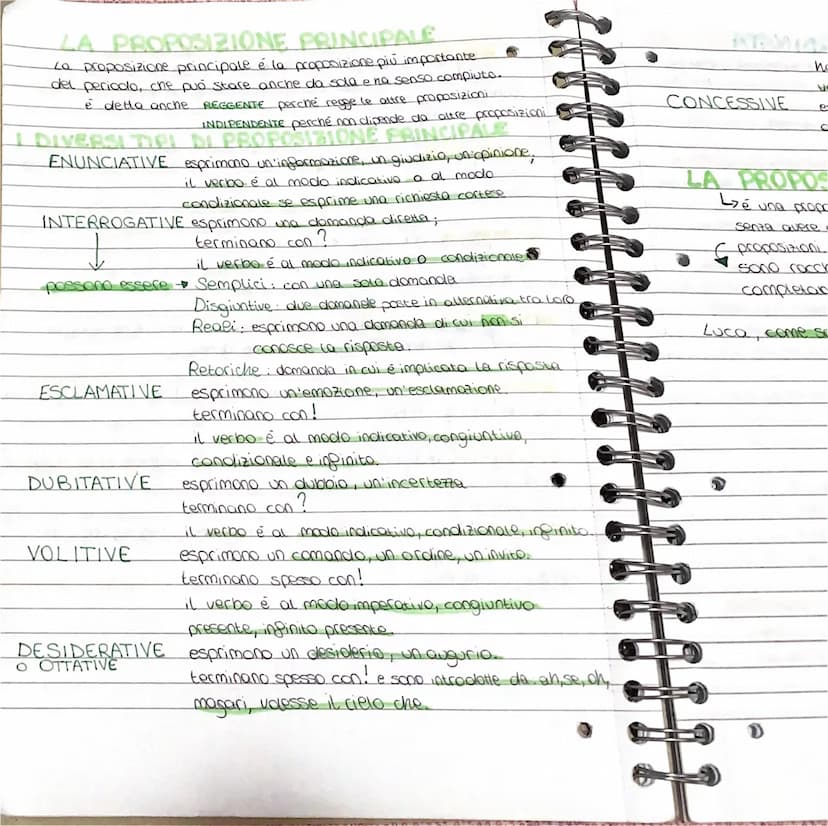 LA PROPOSIZIONE PRINCIPALE
La proposizione principale é la proposizione più importante
del periodo, che può stare anche da sola e ha senso compiuto.
é detta anche REGGENTE perché regge le altre proposizioni
INDIPENDENTE perché non dipende da altre proposizioni
I DIVERSI TIPI DI PROPOSIZIONE PRINCIPALE
ENUNCIATIVE esprimono un'informazione, un giudizio, un'opinione,
il verbo é al modo indicativo o al modo
condizionale se esprime una richiesta cortese
INTERROGATIVE esprimono una domanda diretta;
terminano con?
il verbo é al modo indicativo o condizionale
possono essere → Semplici: con una sola domanda
Disgiuntive: due domande poste in alternativa tra loro
Reali: esprimono una domanda di cui non si
conosce la risposta.
Retoriche: domanda in cui é implicata la risposta
ESCLAMATIVE esprimono un'emozione, un'esclamazione.
terminano con!
il verbo é al modo indicativo, congiuntivo,
condizionale e infinito.
DUBITATIVE esprimono un dubbio, un'incertezza
terminano con?
il verbo é al modo indicativo, condizionale, infinito.
VOLITIVE esprimono un comando, un ordine, un invito.
terminano spesso con!
il verbo é al modo imperativo, congiuntivo
presente, infinito presente.
DESIDERATIVE esprimono un desiderio, un augurio.
o OTTATIVE
terminano spesso con! e sono introdotte da ah, se, oh,
magari, volesse il cielo che.
CONCESSIVE
LA PROPOS
é una propo
senza avere
proposizioni.
sono racc
completar
Luca, come s